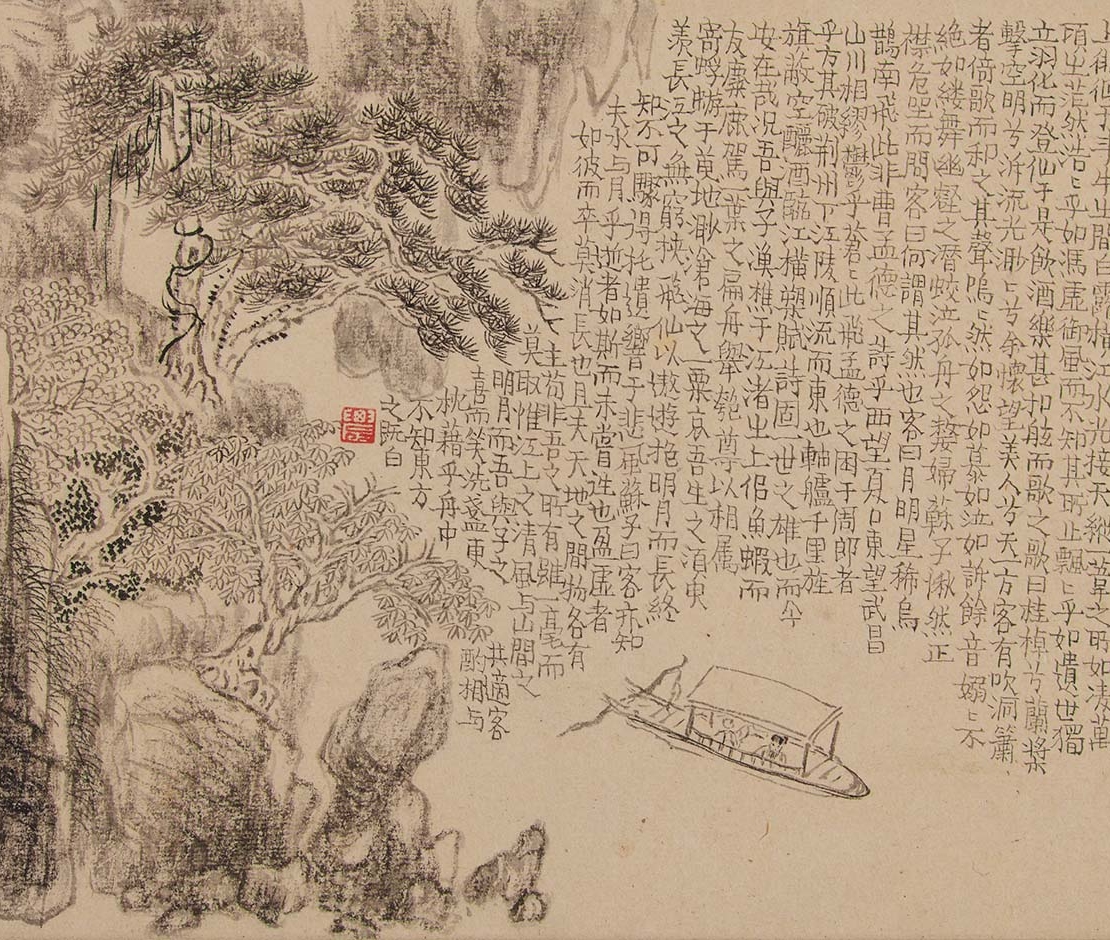 上徘徊于斗牛之間白露橫江水光接天縱一葦之所如凌萬
頃之茫然浩ミ乎如馮虛御風而不知其所止飄ミ乎如遺世獨
立羽化而登仙于是飲酒樂甚扣舷而歌之歌曰桂棹兮蘭槳
擊空明兮泝流光渺ミ兮余懷望美人兮天一方客有吹洞簫
者倚歌而和之其聲嗚ミ然如怨如慕如泣如訴餘音嫋ミ不
絕如縷舞幽壑之潛蛟泣孤舟之嫠婦蘇子愀然正
襟危坐而問客曰何謂其然也客曰月明星稀烏
鵲南飛此非曹孟德之詩乎西望夏口東望武昌
山川相繆鬱乎蒼ミ此飛孟德之困于周郎者
乎方其破荊州下江陵順流而東也軸艫千里旌
旗蔽空釃酒臨江橫槊賦詩固一世之雄也而今
安在哉況吾與子漁樵于江渚之上侣魚蝦而
友麋鹿駕一葉之扁舟舉匏尊以相属
寄蜉蝣于天地渺滄海之一粟哀吾生之須臾
羨長江之無窮挾飛仙以遨遊抱明月而長終
知不可驟得托遺響于悲風蘇子曰客亦知
夫水与月乎逝者如斯而未嘗往也盈虛者
如彼而卒莫消長也且夫天地之間物各有
主茍非吾之所有雖一毫而
莫取惟江上之清風与山間之
明月而吾與子之共適客
喜而笑洗盞更酌相与
枕藉乎舟中
不知東方
之既白